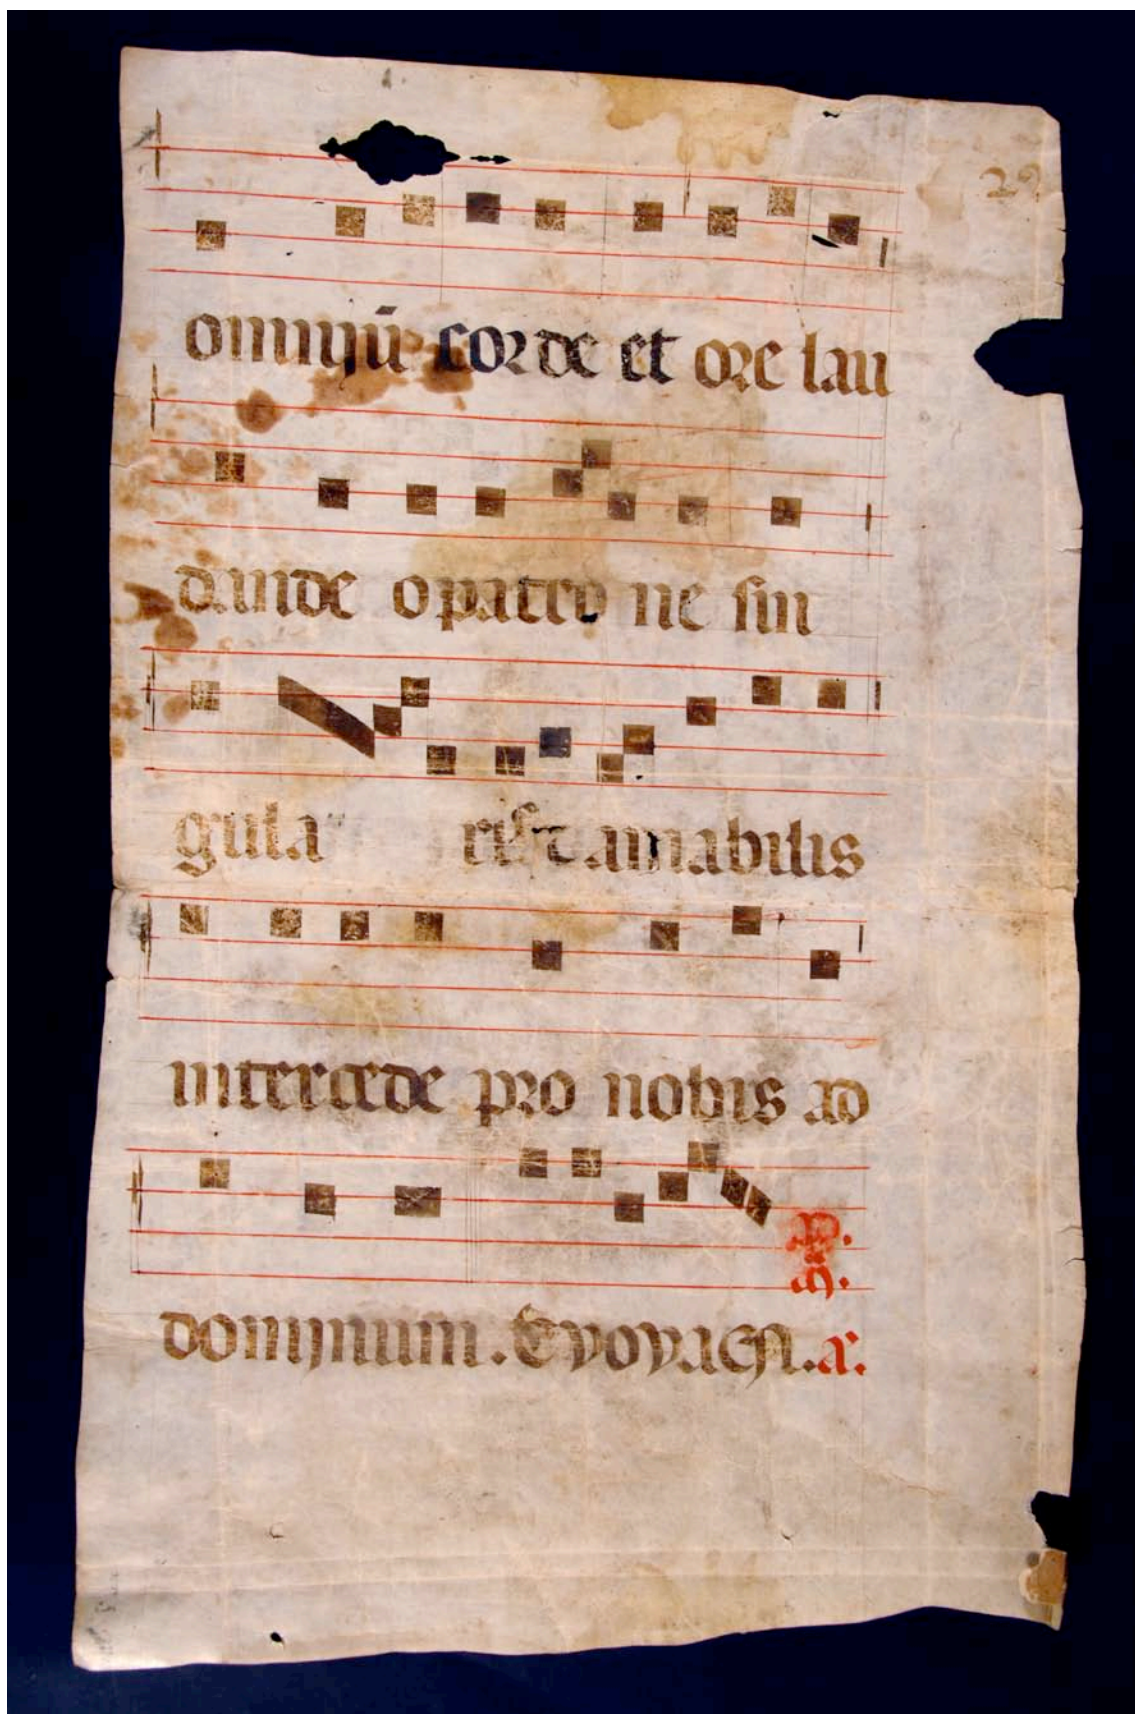 29
omniū corde et ore lau
dande o patro ne sin
gula ris τ amabilis
intercede pro nobis ad
dominum. Evovaen. a.